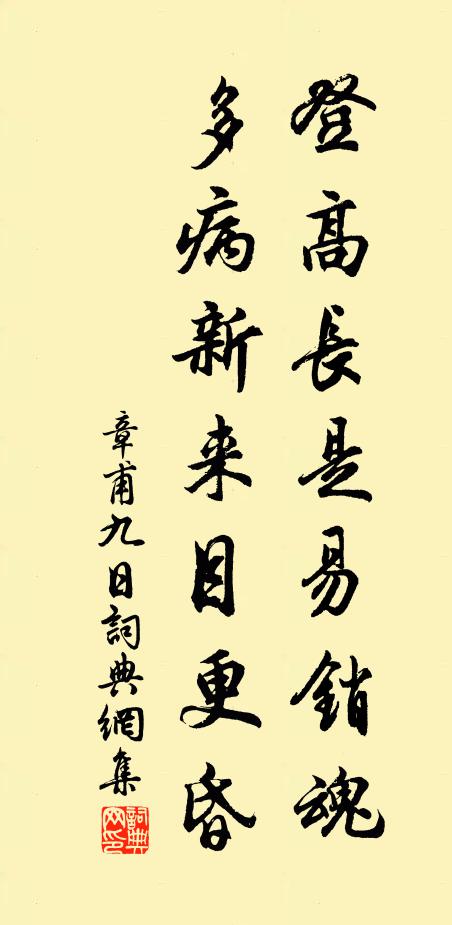 登高長是易銷魂
多病新来目更昏
章甫九日詞典網集
詞典网印